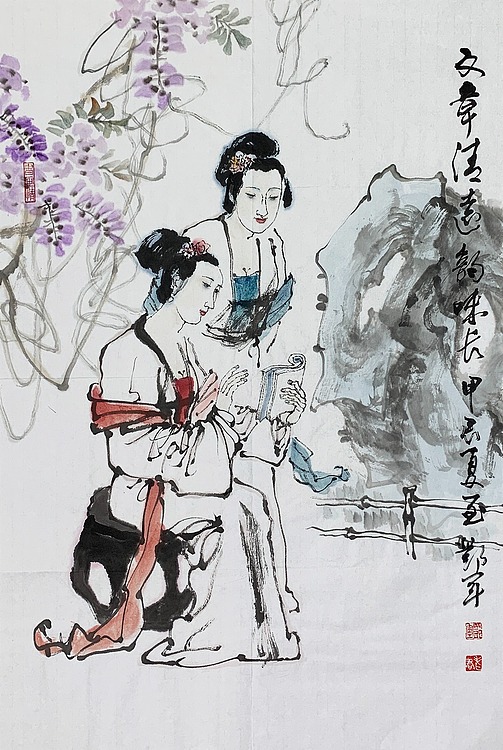 文章清遠韵味长甲辰夏至